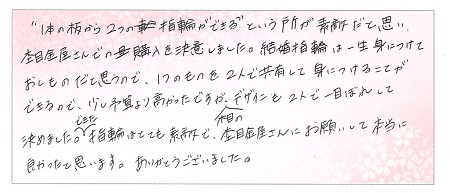 "1本の板から2つの指輪ができる"という所が素敵だと思い、
杢目金屋さんでの購入を決意しました。結婚指輪は一生身につけて
おくものだと思うので、1つのものを2人で共有して身につけることが
できるので、少し予算より高かったですが、デザインも2人で一目ぼれして
決めました。できた指輪はとても素敵で、杢目金屋さんにお願いして本当に
良かったと思います。ありがとうございました。